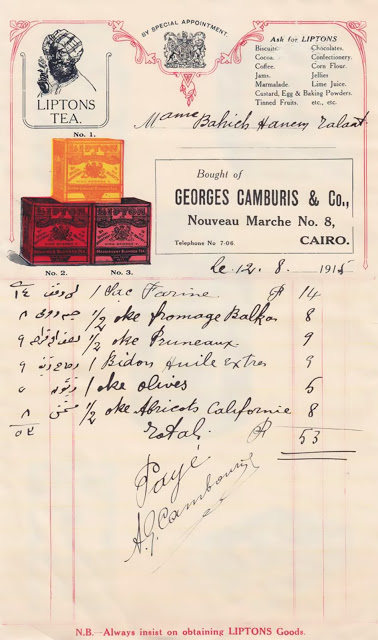 BY SPECIAL APPOINTMENT.
LIPTONS
TEA.
Ask for LIPTONS
Biscuits. Chocolates.
Cocoa. Confectionery.
Coffee. Corn Flour.
Jams. Jellies
Marmalade. Lime Juice.
Custard, Egg & Baking Powders.
Tinned Fruits. etc., etc.
Mame Bahich Hanem
No. 1.
LIPTON
LIPTON LIPTON
No. 2. No. 3.
Bought of
GEORGES CAMBURIS & Co.,
Nouveau Marche No. 8,
Telephone No 7-06. CAIRO.
le 12. 8. 1915
١٤ 1 Sac Farine P 14
٨ 1/2 oke fromage Balkan 8
٩ 1/2 oke Pruneaux 9
٩ 1 Bidon Huile extres 9
٥ زيتون 1 oke olives 5
٨ مشمش 1/2 oke Abricots Californie 8
٥٣ Total P 53
Payé
A.G. Cambouris
N.B.—Always insist on obtaining LIPTONS Goods.